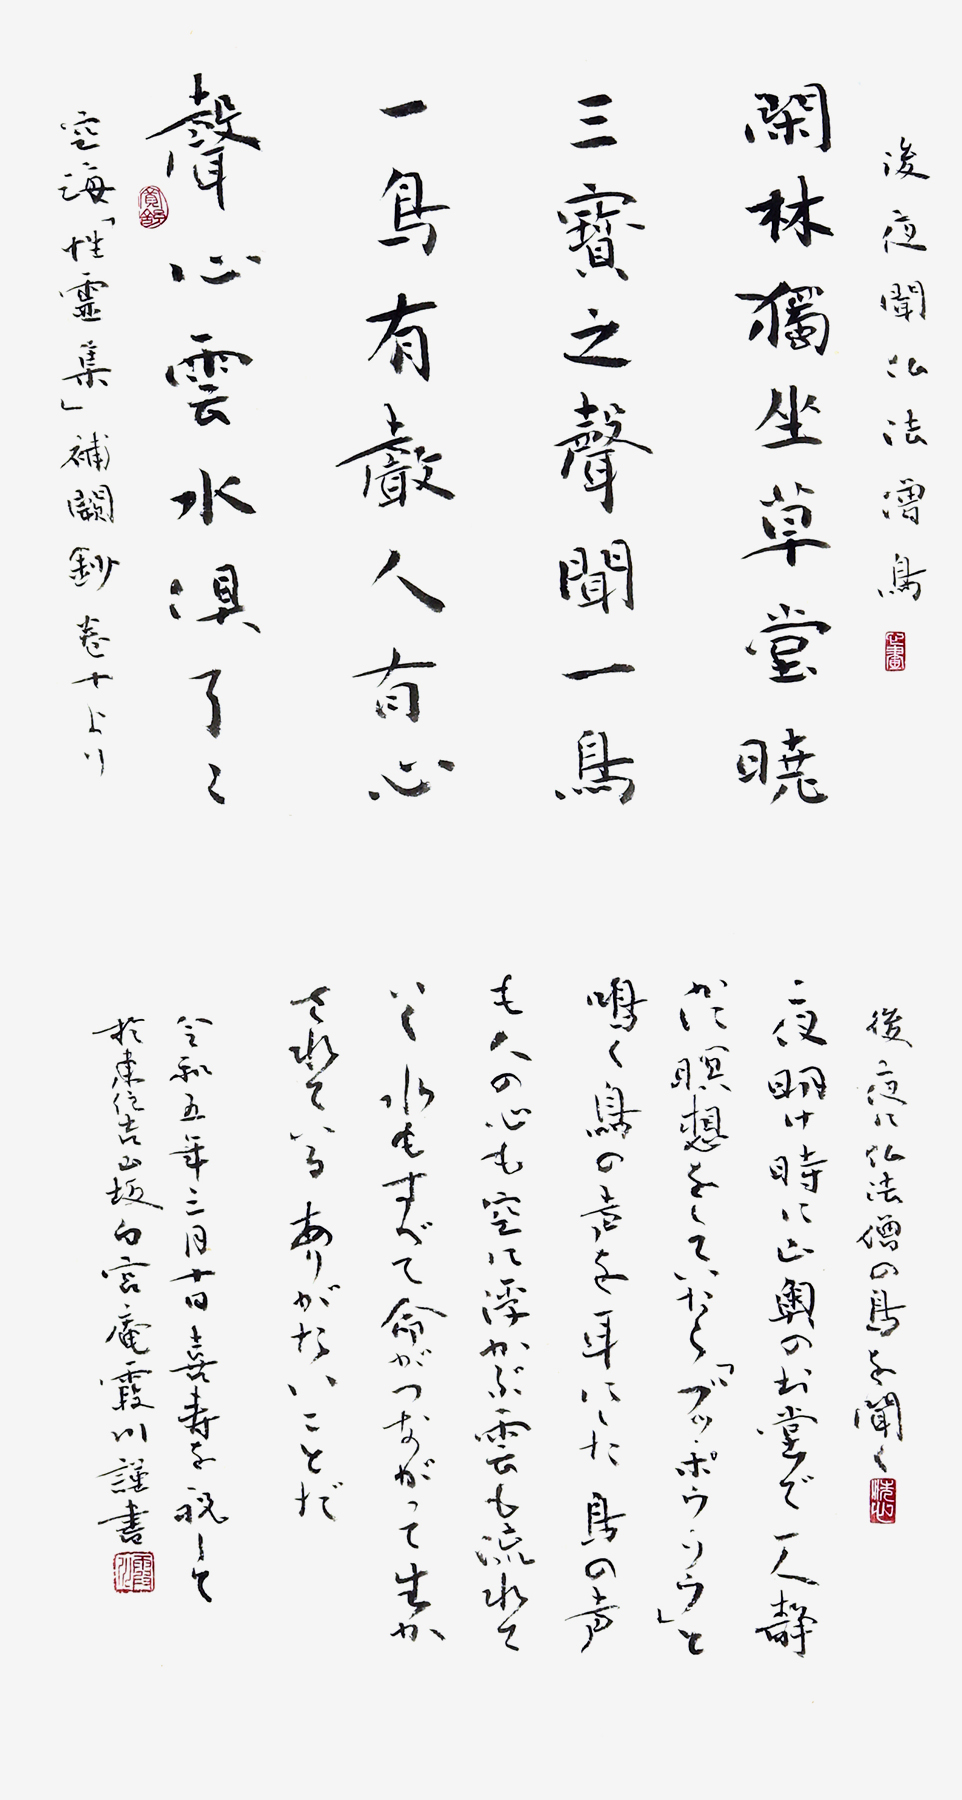 後夜聞仏法僧鳥
閑林獨坐草堂曉
三寳之聲聞一鳥
一鳥有聲人有心
聲心雲水俱了々
空海「性靈集」補闕鈔巻十より
後夜に仏法僧の鳥を聞く
夜明け時に山奥のお堂で一人静
かに瞑想をしていたら「ブッポウソウ」と
鳴く鳥の声を耳にした 鳥の声
も人の心も空に浮かぶ雲も流れて
いく水もすべて命がつながって生か
されている ありがたいことだ
令和五年三月十日 喜寿を祝して
於東住吉山坂白宮庵霞川謹書